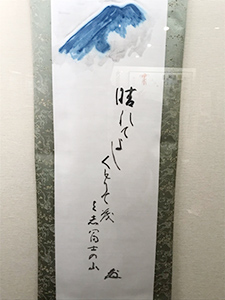 晴れてよし
くもりて茂
よ志冨士の山